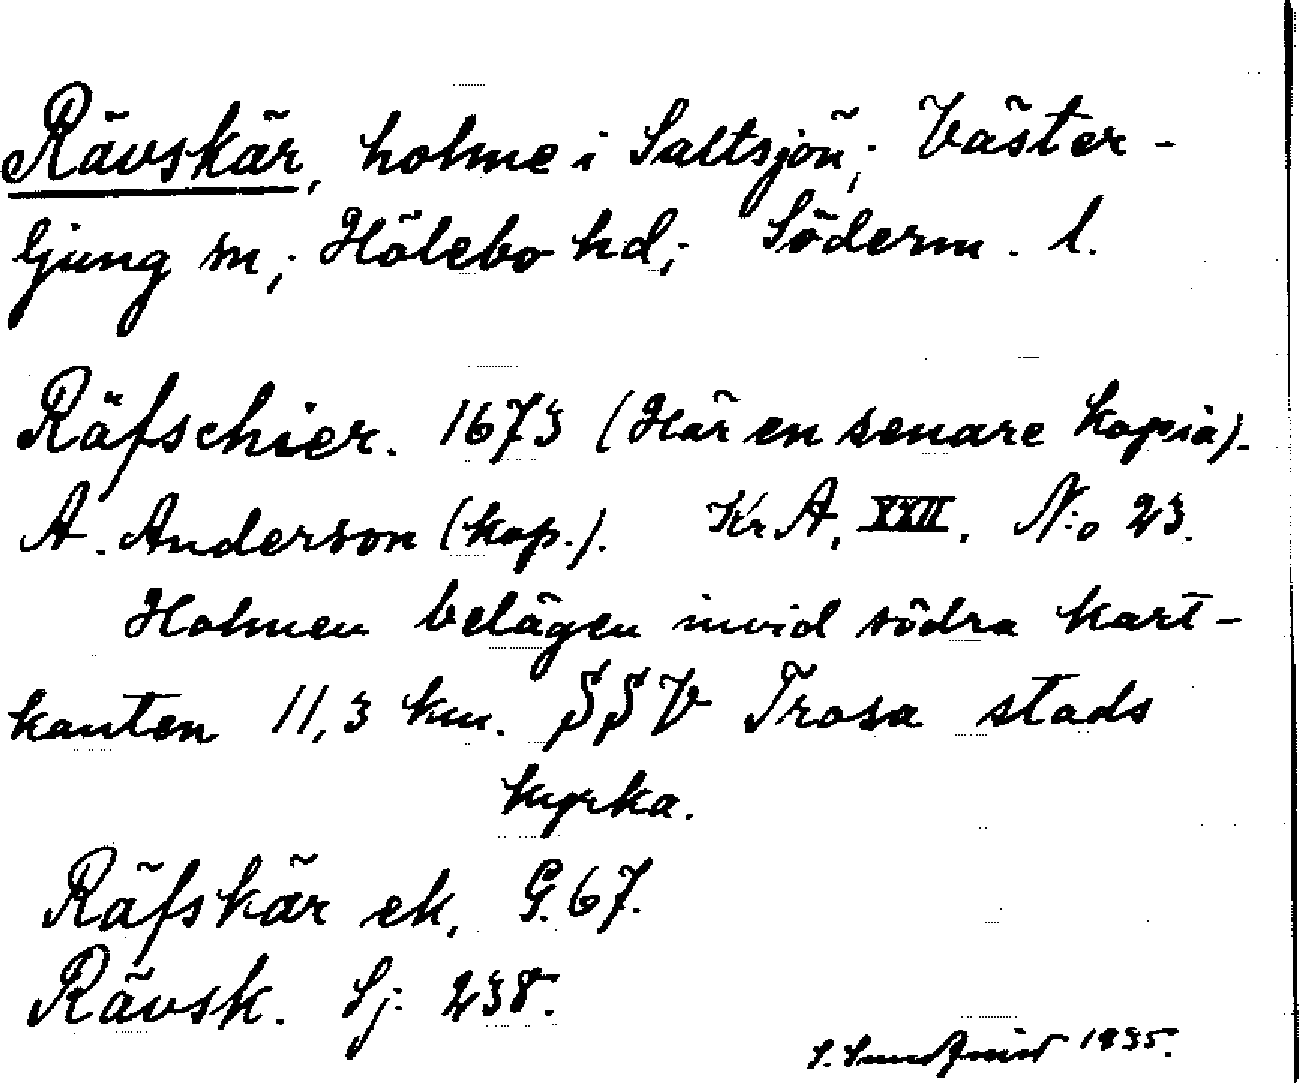 Rävskär, holme i Saltsjön; Väster-
ljung sn; Hölebo hd; Söderm. l.
Räfschier. 1673 (Här en senare kopia).
A. Anderson (kop.). Kr A. XXII. N:o 23.
Holmen belägen invid södra kart-
kanten 11,3 km. SSV Trosa stads
kyrka.
Räfskär ek. G. 67.
Rävsk. Sj. 238.
S. 1935.